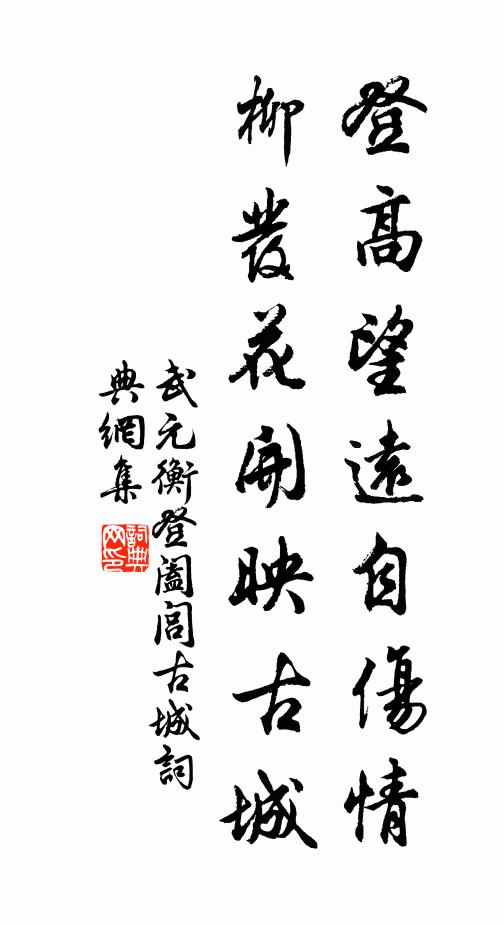 登高望遠自傷情
柳發花開映古城
武元衡登闔閭古城詞
典網集
詞典網印